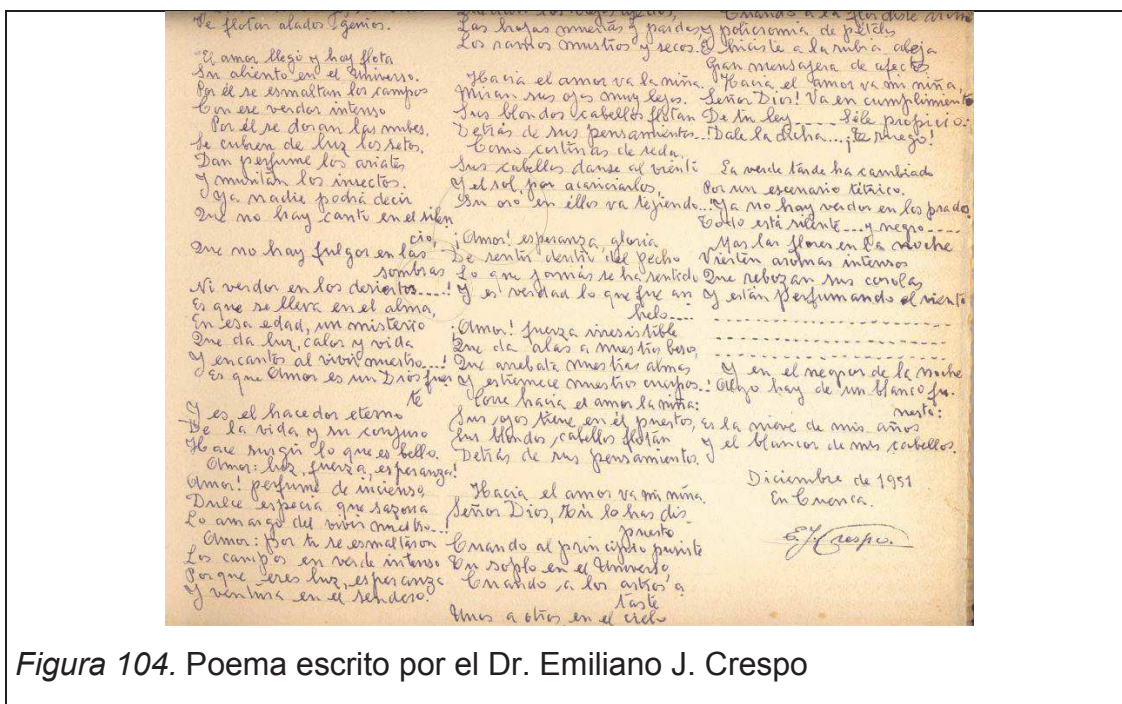 Se flotar alados genios.
El amor llegó y hoy flota
Su aliento en el universo.
Por él se esmaltan los campos
Con ese verdor intenso
Por él se doran las nubes.
Se cubren de luz los setos.
Dan perfume los ariates
Y musitan los insectos.
Ya nadie podrá decir
Que no hay canto en el silen
cio,
Que no hay fulgor en las
sombras
Ni verdor en los desiertos....!
Es que se lleva en el alma,
En esa edad, un misterio
Que da luz, calor y vida
Y encantos al vivir nuestro...!
Es que Amor es un Dios fuer
te
Y es el hacedor eterno
De la vida y su conjuro
Hace surgir lo que es bello.
Amor: luz, fuerza, esperanza!
Amor! perfume de incienso
Dulce especia que sazona
Lo amargo del vivir nuestro..!
Amor: por tu se esmaltaron
Los campos en verde intenso
Porque eres luz, esperanza
Y ventura en el sendero.
los viejos
Las hojas muertas y pardas,
Los ramos mustios y secos.
Hacia el amor va la niña.
Miran sus ojos muy lejos.
Sus blondos cabellos flotan
Detrás de sus pensamientos...
Como cortinas de seda,
Sus cabellos danse al viento
Y el sol, por acariciarlos,
Su oro en éllos va tejiendo...
¡Amor! esperanza, gloria
De sentir dentro del pecho
Lo que jamás se ha sentido
Y es verdad lo que fue an
helo....
¡Amor! fuerza irresistible
Que da alas a nuestros besos,
Que arrebata nuestras almas
Y estremece nuestros cuerpos..!
Corre hacia el amor la niña:
Sus ojos tiene en él puestos,
Sus blondos cabellos flotan
Detrás de sus pensamientos.
Hacia el amor va mi niña.
Señor Dios, Tú lo has dis
puesto
Cuando al principio pusiste
Un soplo en el Universo
Cuando a los astros a
taste
Unos a otros en el cielo
Cuando a la flor diste aroma
y policromía de pétalos
E hiciste a la rubia abeja
Gran mensajera de afectos
Hacia el amor va mi niña,
Señor Dios! Va en cumplimiento
De tu ley.... Séle propicio.
Dale la dicha... ¡te ruego!
La verde tarde ha cambiado
Por un escenario tétrico.
Ya no hay verdor en los prados
Todo está silente...y negro....
Mas las flores en la noche
Vierten aromas intensos
Que rebozan sus corolas
Y están perfumando el viento
Y en el negror de la noche
Algo hay de un blanco fu-
nesto:
Es la nieve de mis años
Y el blancor de mis cabellos.
Diciembre de 1951
En Cuenca.
E. J. Crespo.
Figura 104. Poema escrito por el Dr. Emiliano J. Crespo